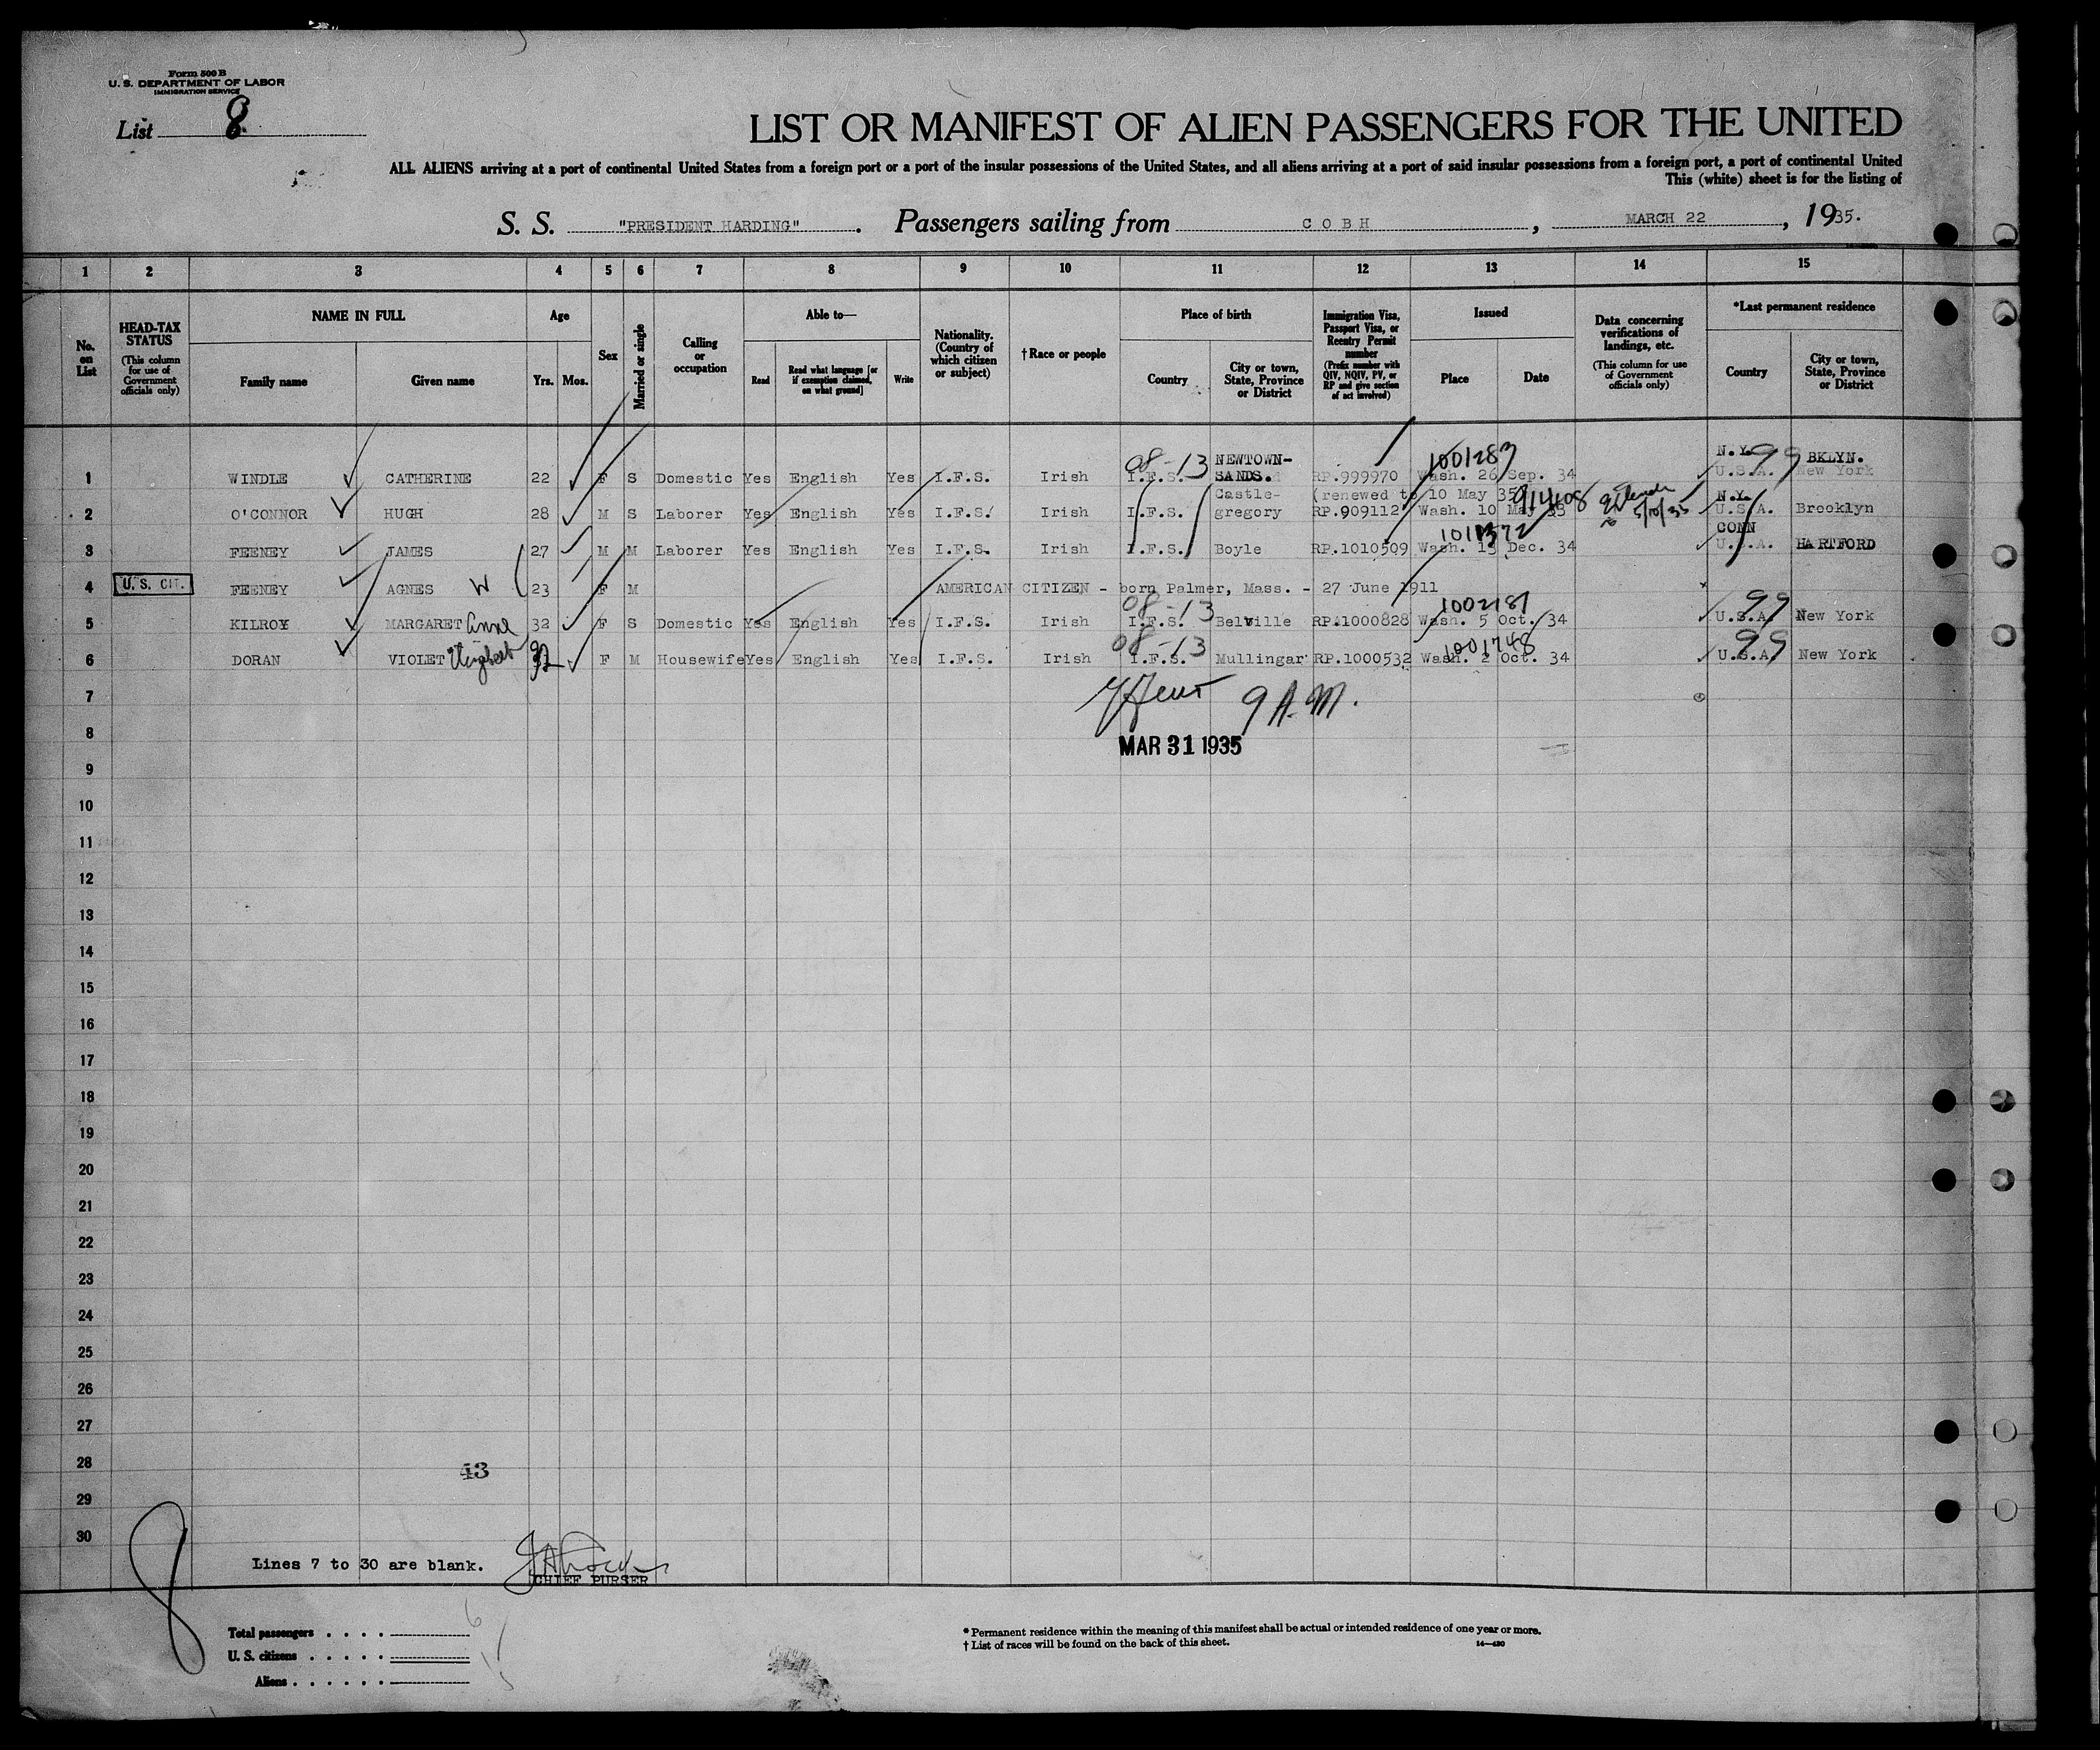 Form 500 B
U. S. DEPARTMENT OF LABOR
IMMIGRATION SERVICE
List 8
LIST OR MANIFEST OF ALIEN PASSENGERS FOR THE UNITED
ALL ALIENS arriving at a port of continental United States from a foreign port or a port of the insular possessions of the United States, and all aliens arriving at a port of said insular possessions from a foreign port, a port of continental United
This (white) sheet is for the listing of
S. S. "PRESIDENT HARDING". Passengers sailing from COBH, MARCH 22, 1935.
1 2 3 4 5 6 7 8 9 10 11 12 13 14 15
No. on List
HEAD-TAX STATUS
(This column for use of Government officials only)
NAME IN FULL
Family name
Given name
Age
Yrs. Mos.
Sex
Married or single
Calling or occupation
Able to—
Read
Read what language [or if exemption claimed, on what ground]
Write
Nationality. (Country of which citizen or subject)
† Race or people
Place of birth
Country
City or town, State, Province or District
Immigration Visa, Passport Visa, or Reentry Permit number
(Prefix number with QIV, NQIV, PV, or RP and give section of act involved)
Issued
Place
Date
Data concerning verifications of landings, etc.
(This column for use of Government officials only)
*Last permanent residence
Country
City or town, State, Province or District
08-13 NEWTOWN- 1001283 N.Y. 99 BKLYN.
1 WINDLE CATHERINE 22 F S Domestic Yes English Yes I.F.S. Irish I.F.S. SANDS. RP.999970 Wash. 26 Sep. 34 U.S.A. New York
Castle- (renewed to 10 May 35) 914408 N.Y.
2 O'CONNOR HUGH 28 M S Laborer Yes English Yes I.F.S. Irish I.F.S. gregory RP.909112 Wash. 10 May 33 5/10/35 U.S.A. Brooklyn
CONN
3 FEENEY JAMES 27 M M Laborer Yes English Yes I.F.S. Irish I.F.S. Boyle RP.1010509 Wash. 13 Dec. 34 U.S.A. HARTFORD
4 U.S. CIT. FEENEY AGNES W 23 F M AMERICAN CITIZEN - born Palmer, Mass. - 27 June 1911
08-13 1002181 99
5 KILROY MARGARET Anne 32 F S Domestic Yes English Yes I.F.S. Irish I.F.S. Belville RP.1000828 Wash. 5 Oct. 34 U.S.A. New York
08-13 1001748 99
6 DORAN VIOLET Elizabeth 32 F M Housewife Yes English Yes I.F.S. Irish I.F.S. Mullingar RP.1000532 Wash. 2 Oct. 34 U.S.A. New York
7
9 A.M.
8
MAR 31 1935
9
10
11
12
13
14
15
16
17
18
19
20
21
22
23
24
25
26
27
28
43
29
30
8
Lines 7 to 30 are blank.
CHIEF PURSER
Total passengers . . . . 6
U. S. citizens . . . . . 1
Aliens . . . . . . 5
* Permanent residence within the meaning of this manifest shall be actual or intended residence of one year or more.
† List of races will be found on the back of this sheet.
14—430